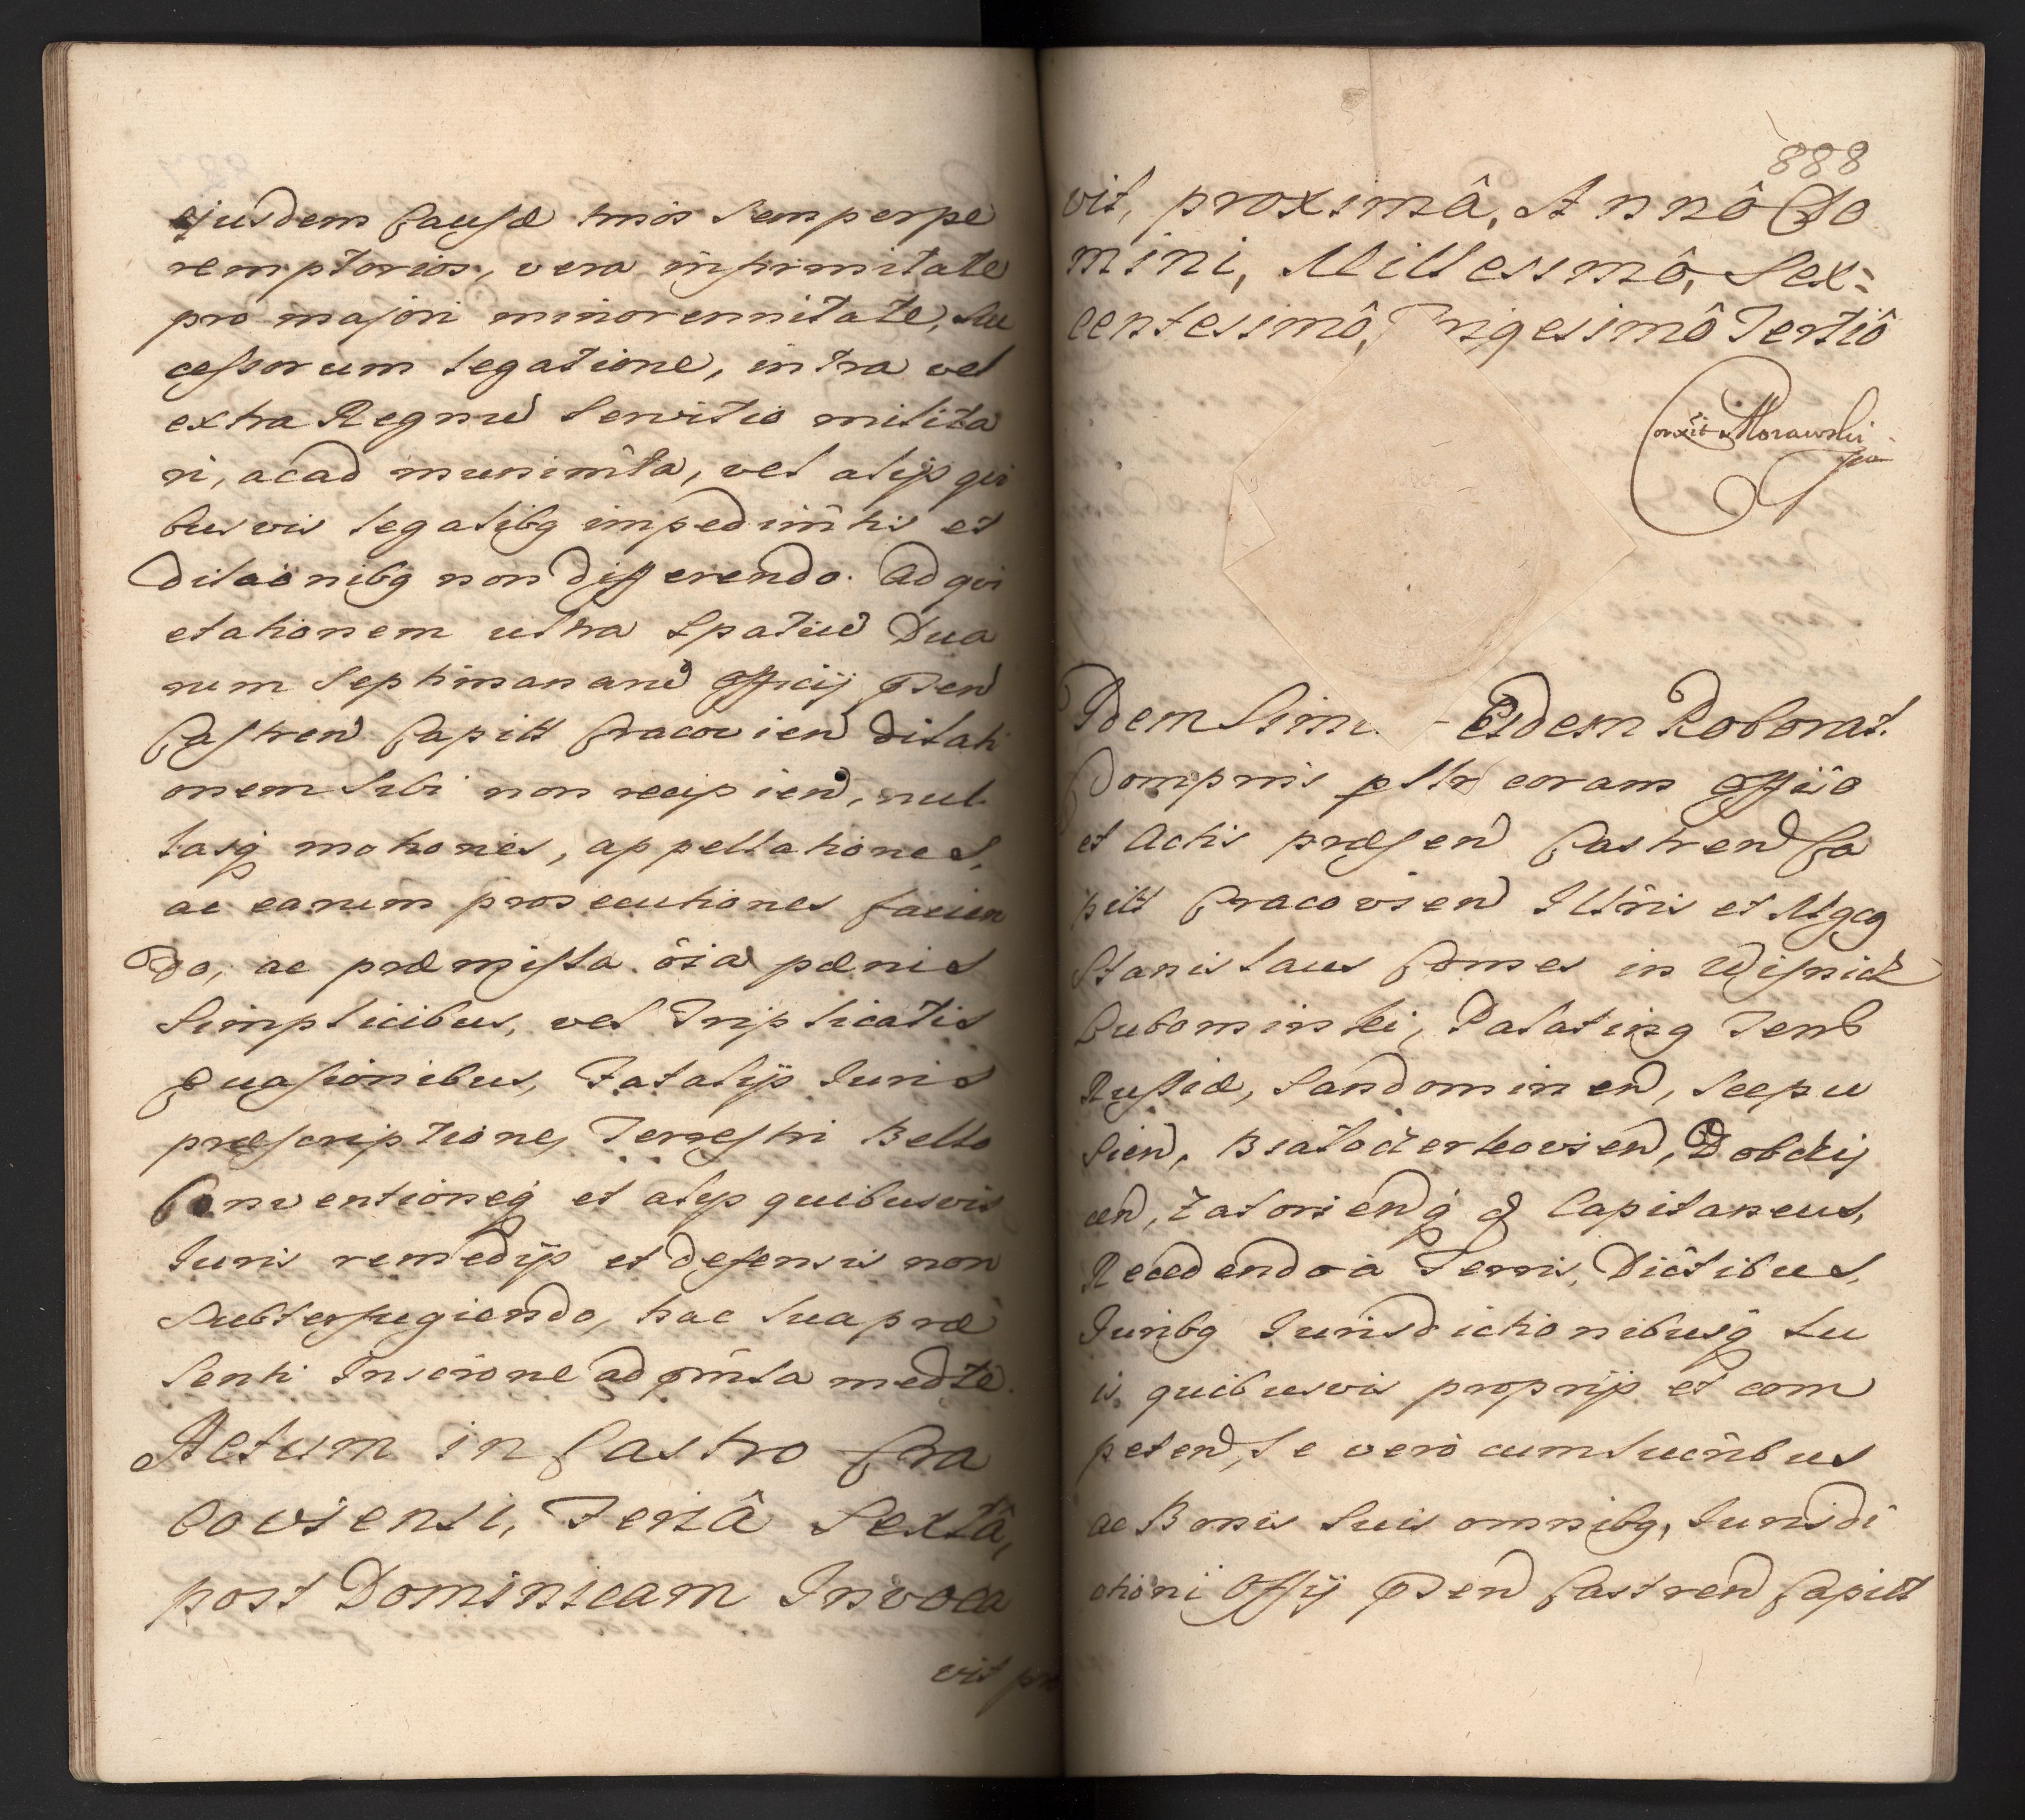 ejusdem Causæ tmos semper pe
remptorios, vera infirmitate
pro majori minorennitate, Suc
cessorum legatione, intra vel
extra Regnu Servitio milita
ri, ac ad munimta, vel alijs qui
bus vis legalibq impedimtis et
dilaonibq non differendo. Ad qui
etationem ultra Spatiu Dua
rum Septimanaru Officij Pen
Castren Capitt Cracovien dilati
onem Sibi non recipien, nul
lasq motiones, appellationes,
ac earum prosecutiones facien
do, ac præmissa oia pænis
Simplicibus, vel Triplicatis
Evasionibus, Fatalijs Juris
præscriptione, Terrestri Bello
Conventioneq et alijs quibusvis
Juris remedijs et defensis non
Subterfugiendo, hac Sua præ
senti Inscrione ad pmissa medte.
Actum in Castro Cra
coviensi, Feriâ Sextâ,
post Dominicam Invoca
vit pro
888
vit, proximâ, Annô Do
mini, Millesimô, Sex=
centesimô, Trigesimô Tertiô
Corexit Morawski
Idem Simi Eidem Roborat.
Compnis psltr coram Officio
et Actis præsen Castren Ca
pitt Cracovien Illris et Mgcq
Stanislaus Comes in Wisnicz
Lubomirski, Palatinq Terr
Russiæ, Sandomirien, Scepu
sien, Białocerkovien, Dobczy
cen, Zatorienq & Capitaneus,
Recedendo à Terris, Districtibus,
Juribq Jurisdictionibusq su
is quibusvis proprijs et com
peten, Se vero cum Sucribus
ac Bonis Suis omnibq, Jurisdi
ctioni Offij Psen Castren Capitt